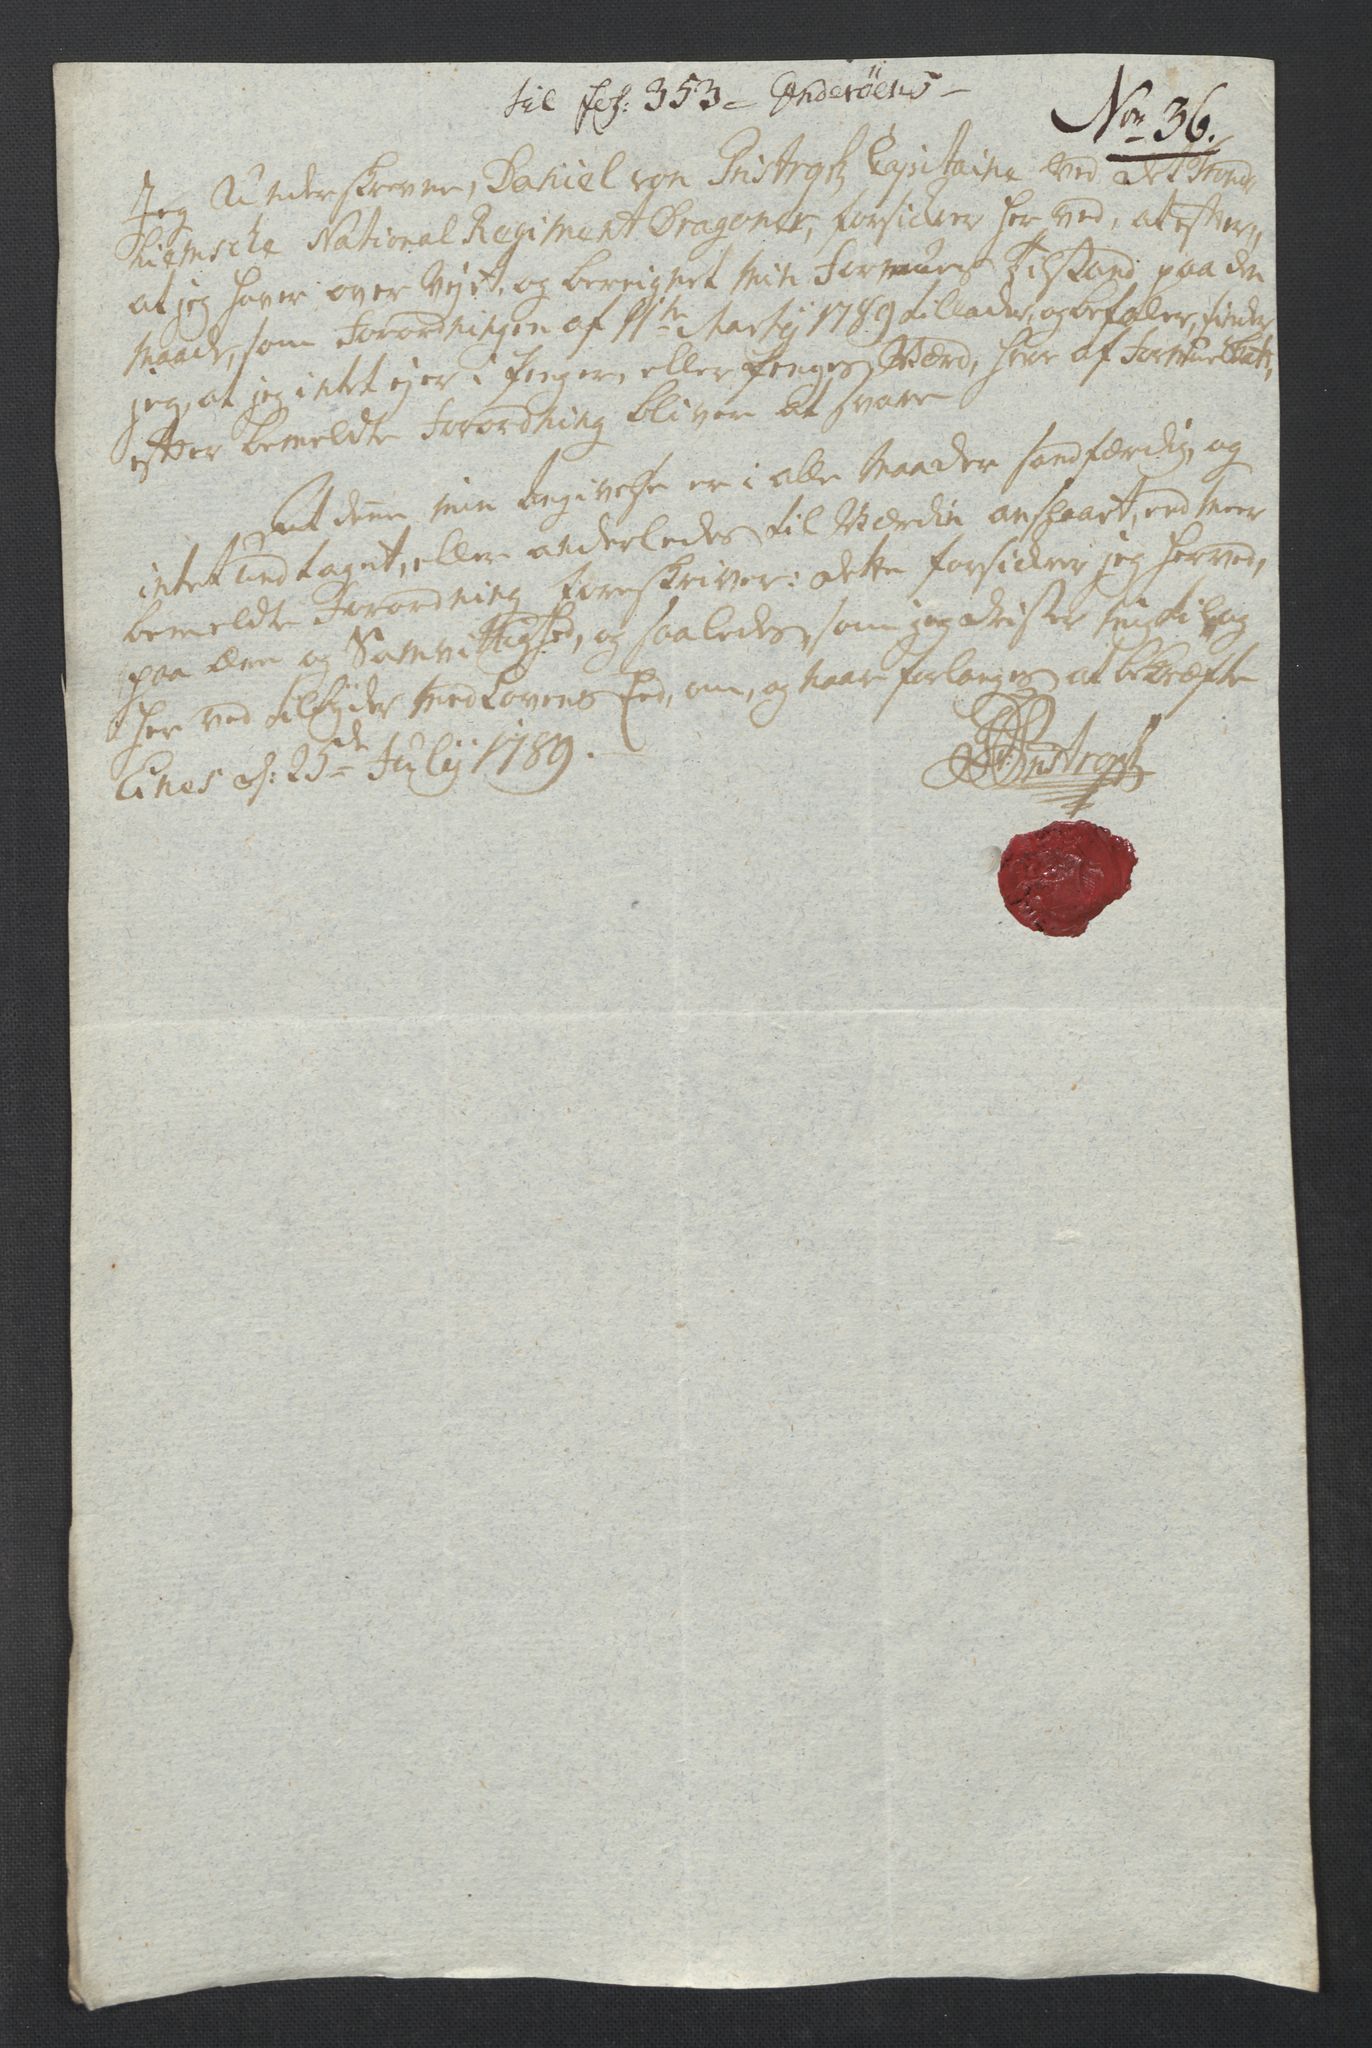 til fol: 353 - Inderöens -
No 36.
Jeg Underskrevne, Daniel von Capitaine ved det Trond-
hiemske National Regiment Dragoner, forsickrer her ved, at efter,,
at jeg haver over vejet, og bereignet min Formues Tilstand paa den
Maade, som Forordningen af 11te Martij 1789 tillader, og befaler, finder
jeg, at jeg intet ejer i Penger, eller Penges Værd, hvor af Formue Skatt,
efter bemeldte Forordning bliver at svare
At denne min Angivelse er i alle Maader sandfærdig, og
intet undtaget, eller anderledes til Værdin anslaaet, end meer
bemeldte Forordning foreskriver: dette forsickrer jeg herved,
paa ære og Samvittighed, og saaledes, som jeg drister mig til, og
her ved tilbyder med Lovens Eed, om, og naar forlanges at bekræfte
Eines d: 25de Julij 1789.